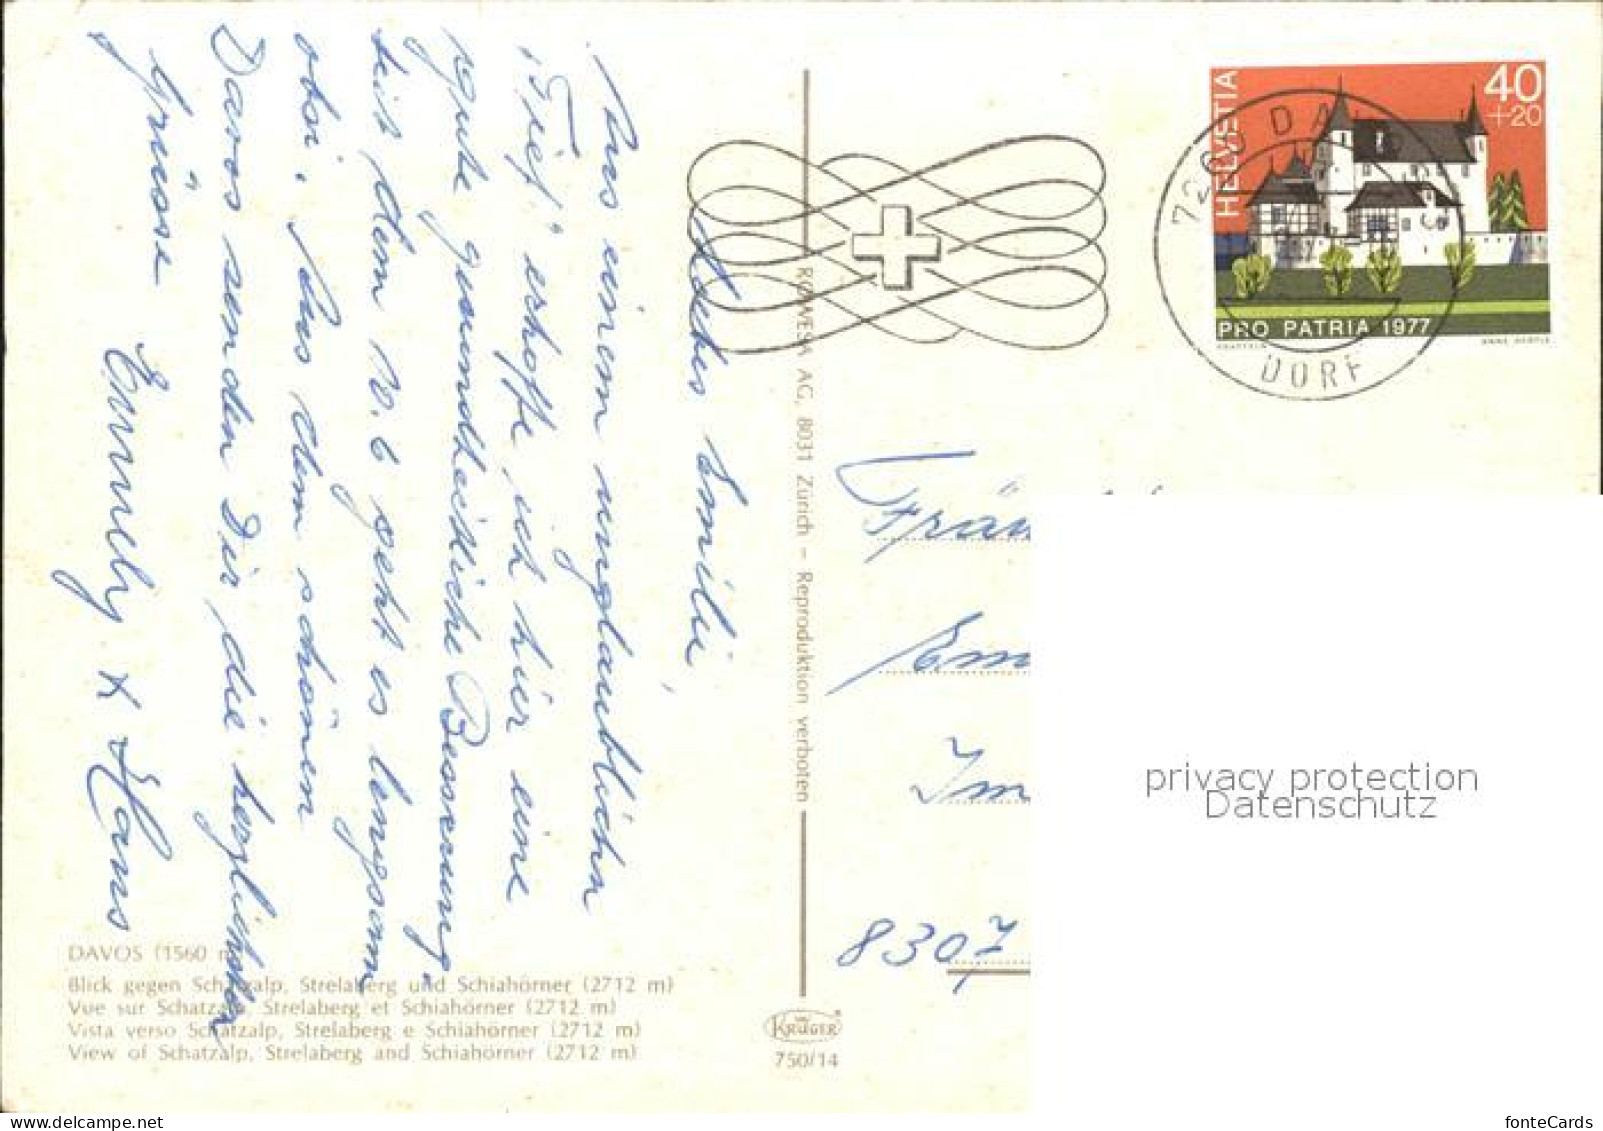 Liebes Emilii,
Aus einem unglaublichen
"Tief" erhoffe ich hier eine
gute gesundheitliche Besserung,
seit dem 10.6 geht es langsam
obsi. Aus dem schönen
Davos senden Dir die herzlichsten
Grüsse
Emmely + Hans
DAVOS (1560 m)
Blick gegen Schatzalp, Strelaberg und Schiahörner (2712 m)
Vue sur Schatzalp, Strelaberg et Schiahörner (2712 m)
Vista verso Schatzalp, Strelaberg e Schiahörner (2712 m)
View of Schatzalp, Strelaberg and Schiahörner (2712 m)
ROWESA AG, 8031 Zürich – Reproduktion verboten
KRÜGER
750/14
HELVETIA
40
+20
PRO PATRIA 1977
DORF
Frän
Em
Im
8307
privacy protection
Datenschutz
fonteCards